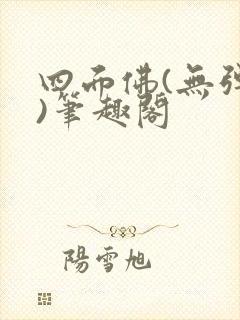 四面佛(無彈
)筆趣閣
陽雪旭